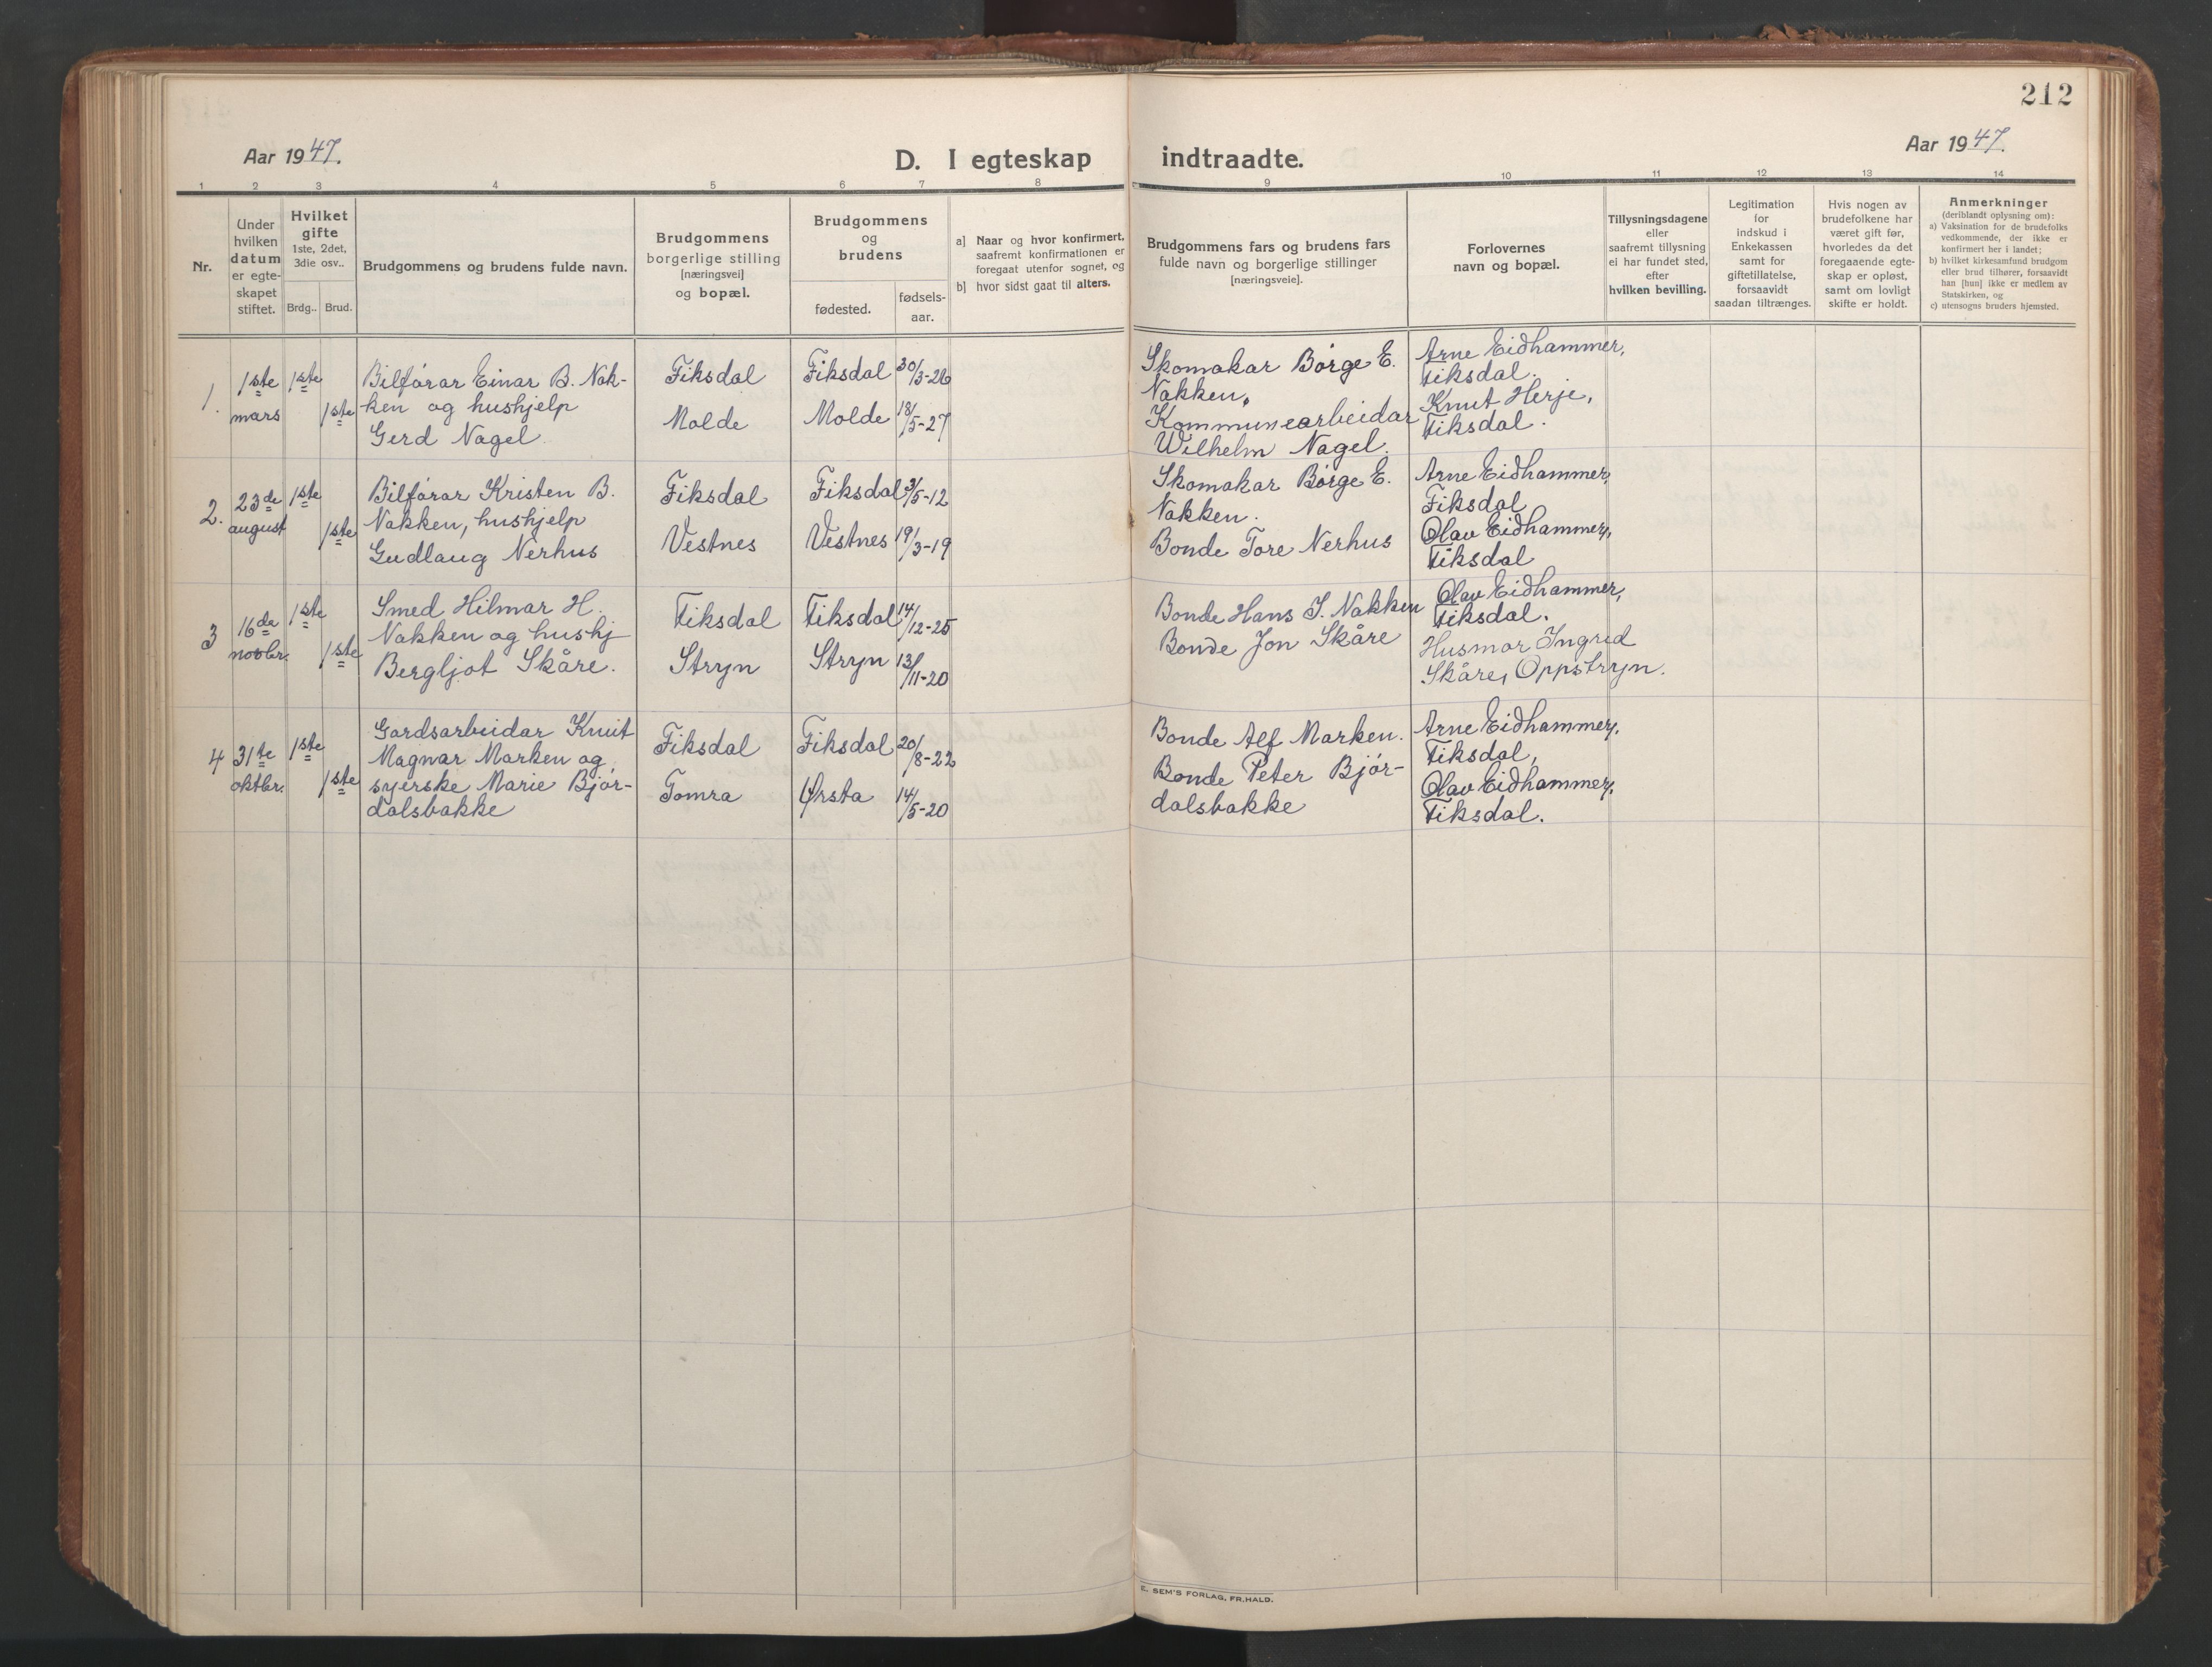 212
Aar 1947.
D. I egteskap indtraadte.
Aar 1947.
1 2 3 4 5 6 7 8 9 10 11 12 13 14
Nr.
Under
hvilken
datum
er egte-
skapet
stiftet.
Hvilket
gifte
1ste, 2det,
3die osv..
Brdg.. Brud.
Brudgommens og brudens fulde navn.
Brudgommens
borgerlige stilling
[næringsvei]
og bopæl.
Brudgommens
og
brudens
fødested.
fødsels-
aar.
a] Naar og hvor konfirmert,
saafremt konfirmationen er
foregaat utenfor sognet, og
b] hvor sidst gaat til alters.
Brudgommens fars og brudens fars
fulde navn og borgerlige stillinger
[næringsveie].
Forlovernes
navn og bopæl.
Tillysningsdagene
eller
saafremt tillysning
ei har fundet sted,
efter
hvilken bevilling.
Legitimation
for
indskud i
Enkekassen
samt for
giftetillatelse,
forsaavidt
saadan tiltrænges.
Hvis nogen av
brudefolkene har
været gift før,
hvorledes da det
foregaaende egte-
skap er opløst,
samt om lovligt
skifte er holdt.
Anmerkninger
(deriblandt oplysning om):
a) Vaksination for de brudefolks
vedkommende, der ikke er
konfirmert her i landet;
b) hvilket kirkesamfund brudgom
eller brud tilhører, forsaavidt
han [hun] ikke er medlem av
Statskirken, og
c) utensogns bruders hjemsted.
1.
1ste
mars
1ste
1ste
Bilførar Einar B. Nak-
ken og hushjelp
Gerd Nagel.
Fiksdal
Molde
Fiksdal
Molde
30/3-26
18/5-27
Skomakar Børge E.
Nakken.
Kommunearbeidar
Wilhelm Nagel.
Arne Eidhammer,
Fiksdal.
Knut Herje,
Fiksdal.
2.
23de
august
1ste
1ste
Bilførar Kristen B.
Nakken, hushjelp
Gudlaug Nerhus
Fiksdal
Vestnes
Fiksdal
Vestnes
/5-12
19/3-19
Skomakar Børge E.
Nakken.
Bonde Tore Nerhus
Arne Eidhammer,
Fiksdal
Olav Eidhammer,
Fiksdal
3
16de
novbr.
1ste
1ste
Smed Hilmar H.
Nakken og hushj
Bergljot Skåre.
Fiksdal
Stryn
Fiksdal
Stryn
14/12-25
13/11-20
Bonde Hans J. Nakken
Bonde Jon Skåre
Olav Eidhammer,
Fiksdal.
Husmor Ingrid
Skåre, Oppstryn.
4
31te
oktbr.
1ste
1ste
Gardsarbeidar Knut
Magnar Marken og
syerske Marie Bjør-
dalsbakke
Fiksdal
Tomra
Fiksdal
Ørsta
20/8-22
14/5-20
Bonde Alf Marken.
Bonde Peter Bjør-
dalsbakke
Arne Eidhammer,
Fiksdal,
Olav Eidhammer,
Fiksdal.
E. SEM'S FORLAG, FR.HALD.